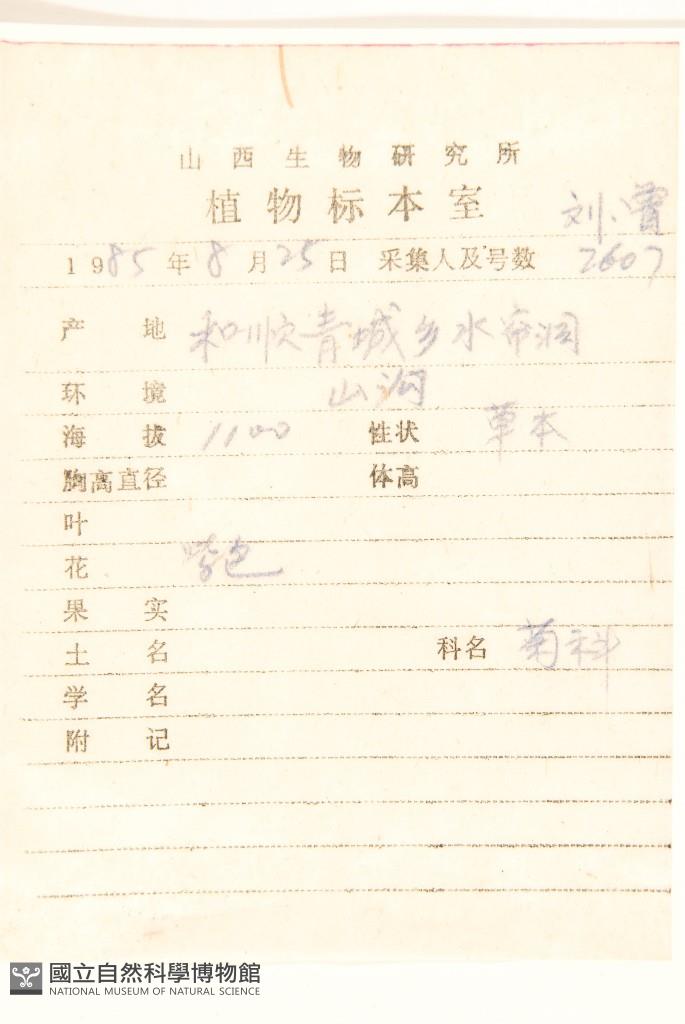 山西生物研究所
植物标本室
刘、曾
1985年8月25日 采集人及号数 2607
产地 和顺青城乡水帘洞
环境 山沟
海拔 1100 性状 草本
胸高直径 体高
叶
花 紫色
果实
土名 科名 菊科
学名
附记
國立自然科學博物館
NATIONAL MUSEUM OF NATURAL SCIENCE